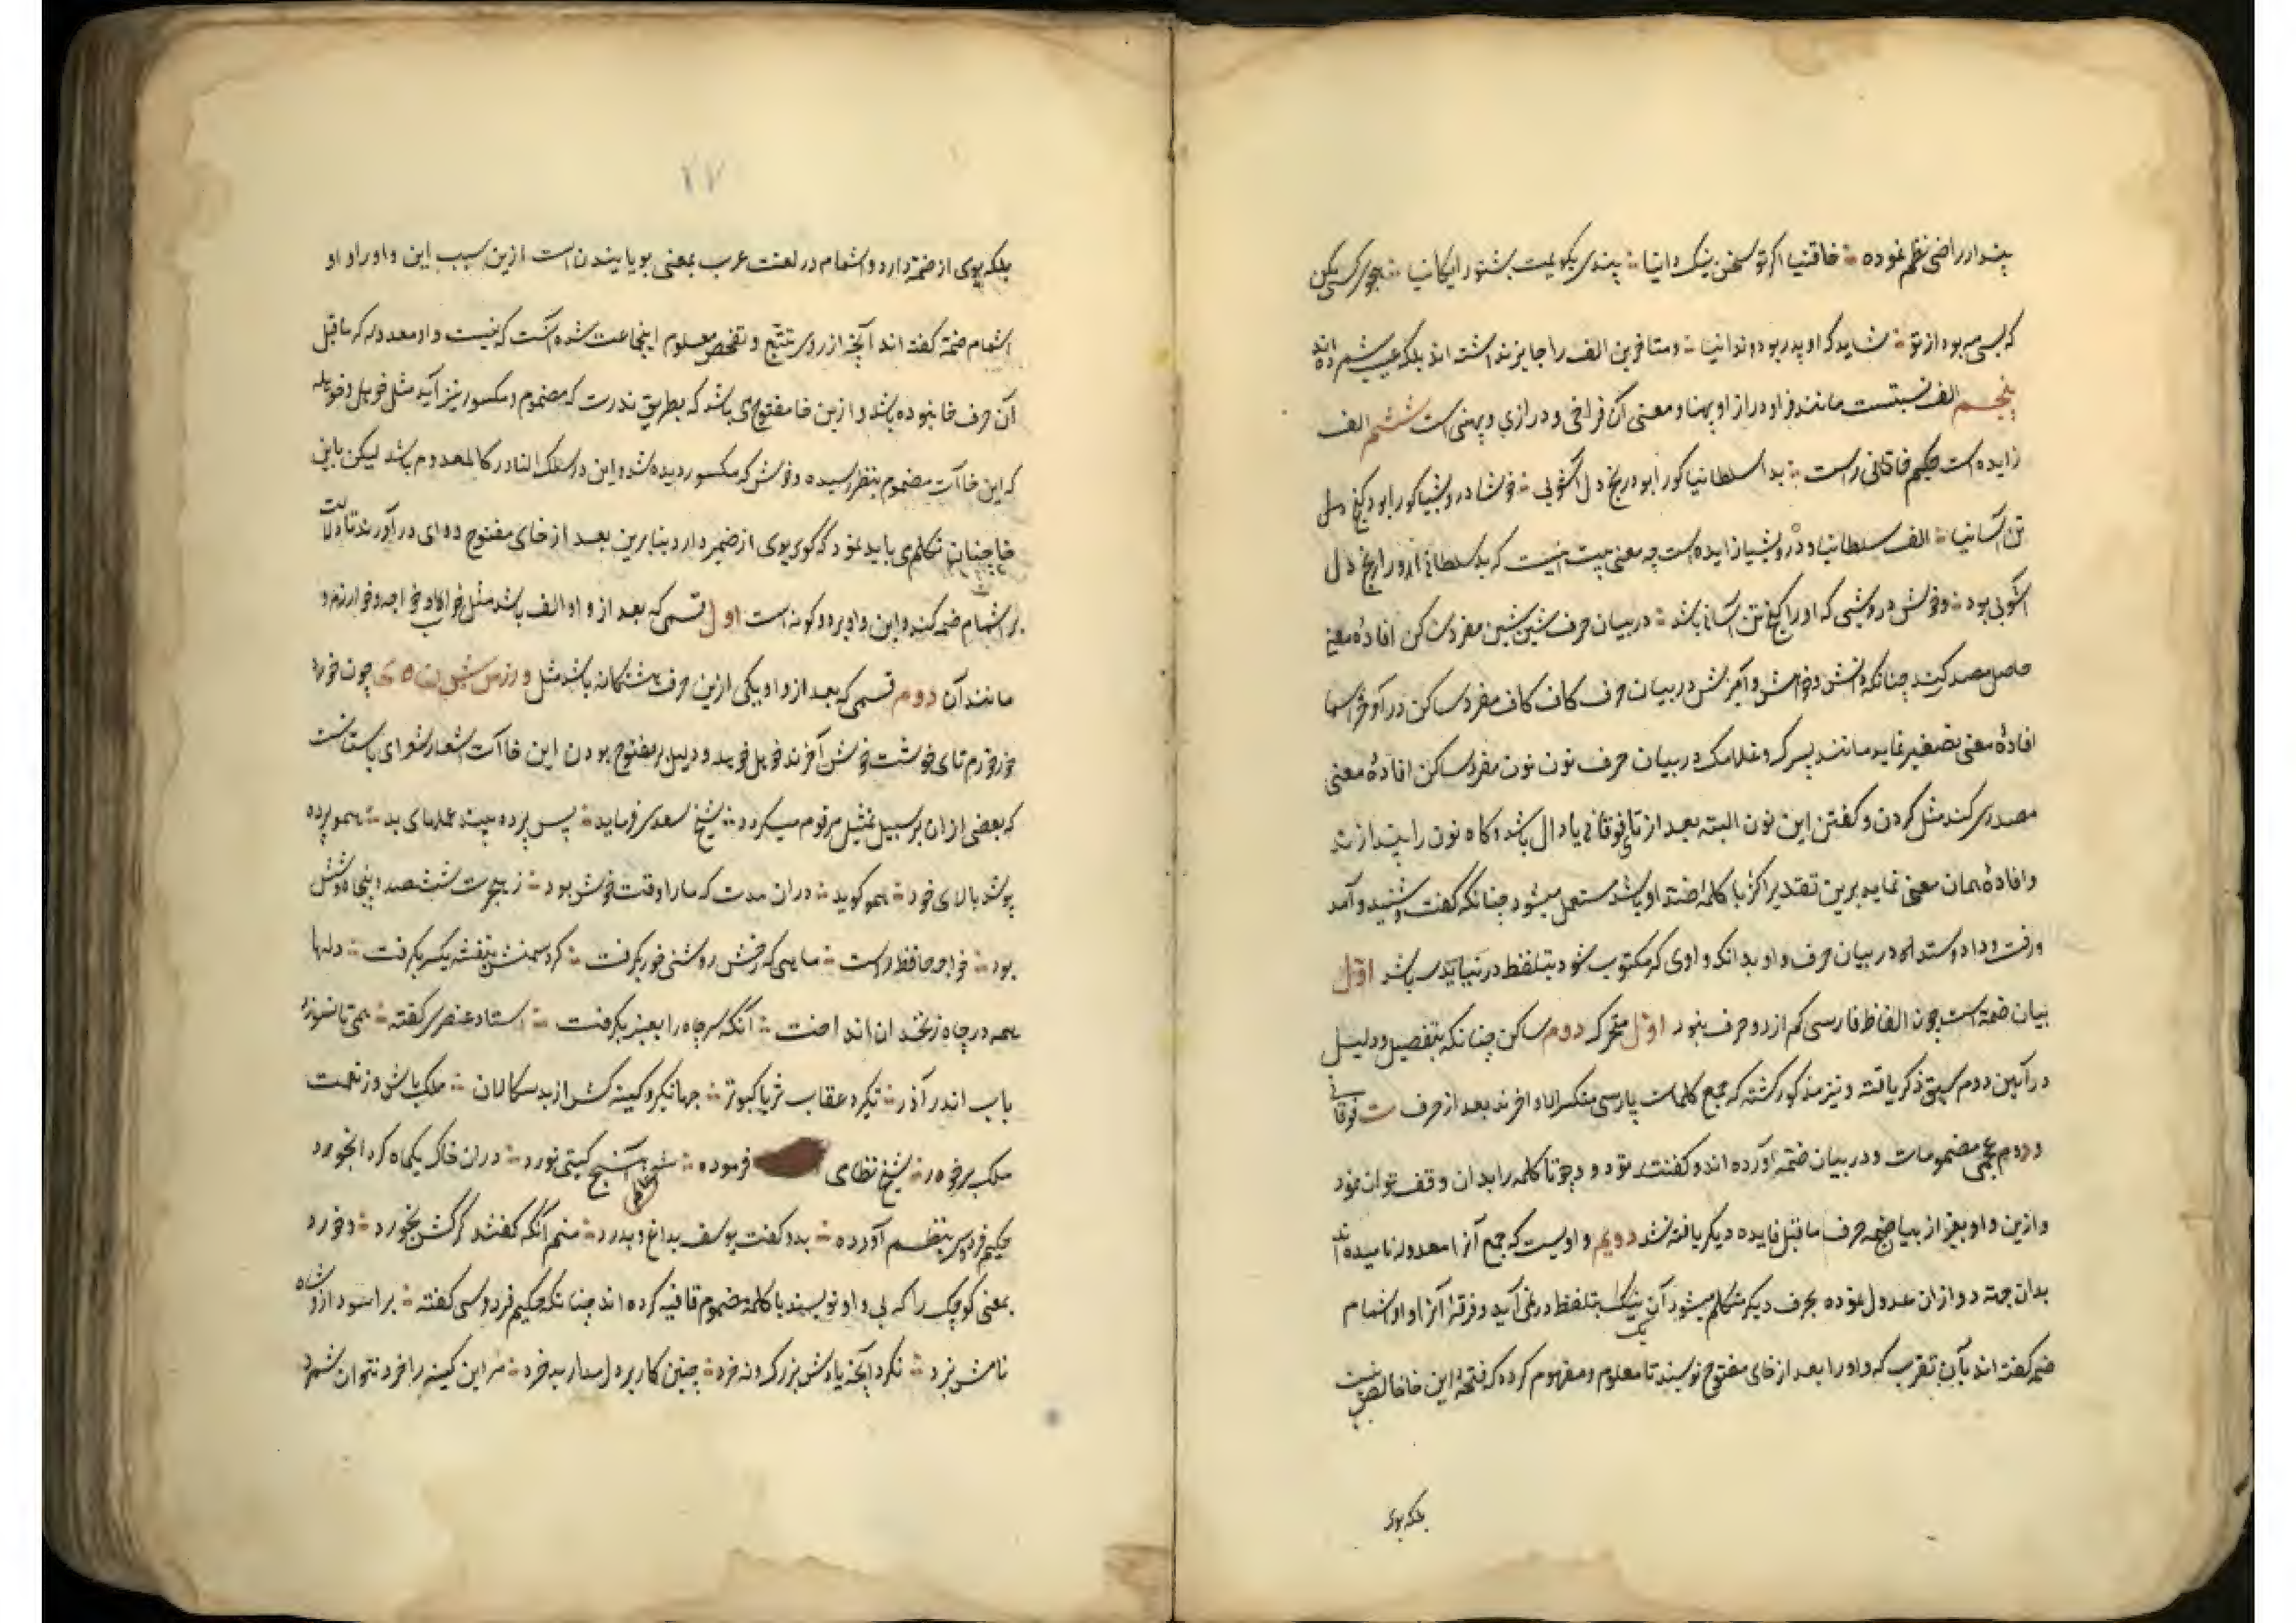 پندار راضی نظم نموده خاقنیا اگر تو سخن نیک دانیا پندی بگویمت بشنو رایگانیا هجو کسی مکن
که بسی مه بود از تو شاید که او پدر بود و ندانیا و متاخرین الف را جایز نداشته اند بلکه عیب شمرده اند
پنجم الف نسبتست مانند فراو درازا و پهنا و معنی آن فراخی و درازی و پهنی است ششم الف
زایده است حکیم خاقانی راست بدا سلطانیا کو را بود رنج دل آشوبی خوشا درویشیا کو را بود گنج
تن آسانیا الف سلطانیا و درویشیا زایده است چه معنی بیت اینست که بد سلطانی که او را رنج دل
آشوبی بود و خوش درویشی که او را گنج تن آسانی باشد در بیان حرف شین شین مفرد ساکن افادهٔ معنی
حاصل مصدر کند چنانکه دانش و خواهش و آمرزش در بیان حرف کاف کاف مفرد ساکن در آخر اسما
افادهٔ معنی تصغیر نماید مانند پسرک و غلامک در بیان حرف نون نون مفرد ساکن افادهٔ معنی
مصدری کند مثل کردن و گفتن این نون البته بعد از تای فوقانی یا دال باشد و گاه نون را بیندازند
و افادهٔ همان معنی نماید برین تقدیر اکثر با کلمه ضد او باشد مستعمل میشود چنانکه گفت و شنید و آمد
و رفت و داد و ستد در بیان حرف واو بدانکه واوی که مکتوب شود بتلفظ در نیاید سه باشد اول
بیان ضمه است چون الفاظ فارسی کم از دو حرف نبود اول متحرک دوم ساکن چنانکه بتفصیل و دلیل
در آیین دوم سبق ذکر یافته و نیز مذکور گشته که جمیع کلمات پارسی ساکن الاخرند بعد از حرف ت فوقانی
و دوم عجمی مضمومات در بیان ضمه آورده اند و گفتند تو دو و چو تا کلمه را بدان وقف توان نمود
و ازین واو بغیر از بیان ضمه حرف ماقبل فایده دیگر یافته نشد دویم واویست که جمع آنرا معدوله نامیده اند
بدان جهة دو ازان عدول نموده بحرف دیگر متکلم میشود آن نیک بتلفظ در نمی آید و فرقه آنرا واو اشمام
ضمه گفته اند بآن تقرب که واو را بعد از خای مفتوح نویسند تا معلوم و مفهوم کرده که فتحه این خا خالص نیست
بلکه بوی
۲۷
بلکه بوی از ضمه دارد و اشمام در لغت عرب بمعنی بویانیدن است ازین سبب این واو را واو
اشمام ضمه گفته اند آنچه از روی تتبع و تفحص معلوم اینجماعت شده آنست که نیست واو معدوله که ماقبل
آن حرف خا نبوده باشد و ازین خا مفتوح می باشد که بطریق ندرت که مضموم و مکسور نیز آید مثل خوهل و خوهله
که این خاآت مضموم بنظر رسیده و خویش که مکسور دیده شد و این در سلک النادر کالمعدوم باشد لیکن باین
خا چنان تکلم می باید نمود که گویی بوی از ضمه دارد بنابرین بعد از خای مفتوح واوی در آورند تا دلالت
بر اشمام ضمه کند و این واو بر دو گونه است اول قسمی که بعد از واو الف باشد مثل خواب و خواجه و خوارزم و
مانند آن دوم قسمی که بعد از واو یکی ازین حرف هشتگانه باشد مثل د ر ز س ش ن ه ی چون خورد
خور خوزم تای خوست خوش آخوند خوهل خوهله و دلیل بر مفتوح بودن این خاآت اشعار شعرای باستانست
که بعضی ازان بر سبیل تمثیل مرقوم میگردد شیخ سعدی فرماید پس پرده بیند عملهای بد همو پرده
پوشد بالای خود همو گوید دران مدت که ما را وقت خوش بود ز هجرت ششصد و پنجاه و شش
بود خواجه حافظ راست ماهی که رخش روشنی خور بگرفت گرد سمنش بنفشه یکسر بگرفت دلها
همه در چاه زنخدان انداخت آنگه سر چاه را بعنبر بگرفت استاد عنصری گفته همی تا نسوزد
باب اندر آذر نگیرد عقاب ثریا کبوتر جهانگیر و کینه کش از بد سگالان ملک باش و ز نعمت
ملک برخور شیخ نظامی فرموده گیتی نورد دران خاک یکماه کرد آبخورد
حکیم فردوسی بنظم آورده بدو گفت یوسف بداغ و بدرد منم آنکه گفتند گرگش بخورد و خورد
بمعنی کوچک را که بی واو نویسند با کلمه مضموم قافیه کرده اند چنانکه حکیم فردوسی گفته بر آسود ازو شاه
نامش نبرد نگر دانچه یادش بزرگ و نه خرد چنین کار بر دل مدار به خرد مر این کینه را خرد نتوان شمرد